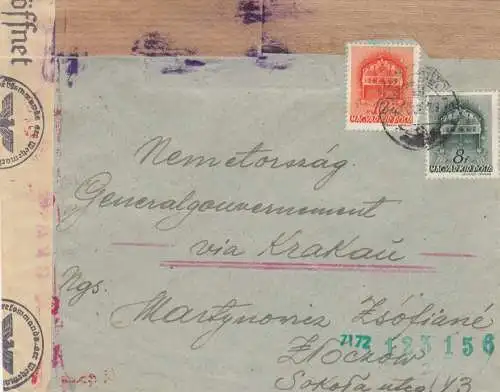 öffnet
MAGYAR KIR. POSTA
8f
MAGYAR KIR. POSTA
Németország
Generalgouvernement
via Krakau
Ngs.
Martynovicz Zsófiáné
7172 123156
Złoczów
Sokola utca 13